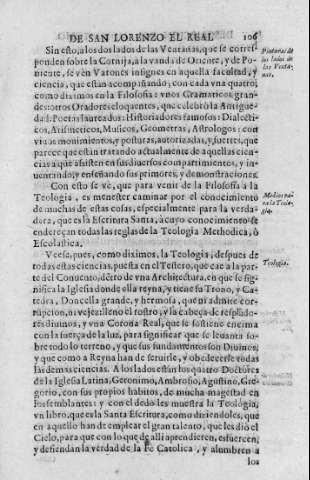 DE SAN LORENZO EL REAL. 106
Sin esto, a los dos lados de las Ventanas, que se corres-
ponden sobre la Cornija, a la vanda de Oriente, y de Po-
niente, se vèn Varones insignes en aquella facultad, y
ciencia, que estàn acompañando; con cada vna quatro;
como diximos en la Filosofia: vnos Gramaticos gran-
des: otros Oradores eloquentes, que celebrò la Antigue-
dad: Poetas laureados: Historiadores famosos: Dialecti-
cos, Arismeticos, Musicos, Geometras, Astrologos: con
vivos movimientos, y posturas, autorizadas, y fuertes, que
parece que estàn tratando actualmente de aquellas cien-
cias a que assisten en sus diuersos compartimientos, y in-
uentando, y enseñando sus primores, y demonstraciones.
Con esto se vè, que para venir de la Filosofia a la
Teologia, es menester caminar por el conocimiento
de muchas de estas cosas, especialmente para la verda-
dera, que es la Escritura Santa, a cuyo conocimiento se
endereçan todas las reglas de la Teologia Methodica, ò
Escolastica.
Veese, pues, como diximos, la Teologia, despues de
todas estas ciencias, puesta en el Testero, que cae a la par-
te del Conuento, dẽtro de vna Architectura, en que se sig-
nifica la Iglesia donde ella reyna, y tiene su Trono, y Ca-
tedra, Doncella grande, y hermosa, que ni admite cor-
rupcion, ni vejez alli en el rostro, y la cabeça de resplādo-
res diuinos, y vna Corona Real, que se sostiene encima
con la fuerça de la luz, para significar que se leuanta so-
bre todo lo terreno, y que sus fundamentos son Diuinos,
y que como a Reyna han de seruirle, y obedecerse todas
las demas ciencias. A los lados estàn los quatro Doctores
de la Iglesia Latina, Geronimo, Ambrosio, Agustino, Gre-
gorio, con sus propios habitos, de mucha magestad en
los semblantes: y con el dedo les muestra la Teologia,
vn libro, que es la Santa Escritura, como diziendoles, que
en aquello han de emplear el gran talento, que les diò el
Cielo, para que con lo que de alli aprendieren, esfuercen,
y defiendan la verdad de la Fè Catolica, y alumbren a
los
Pinturas de
los lados de
las Venta-
nas.
Teologia.